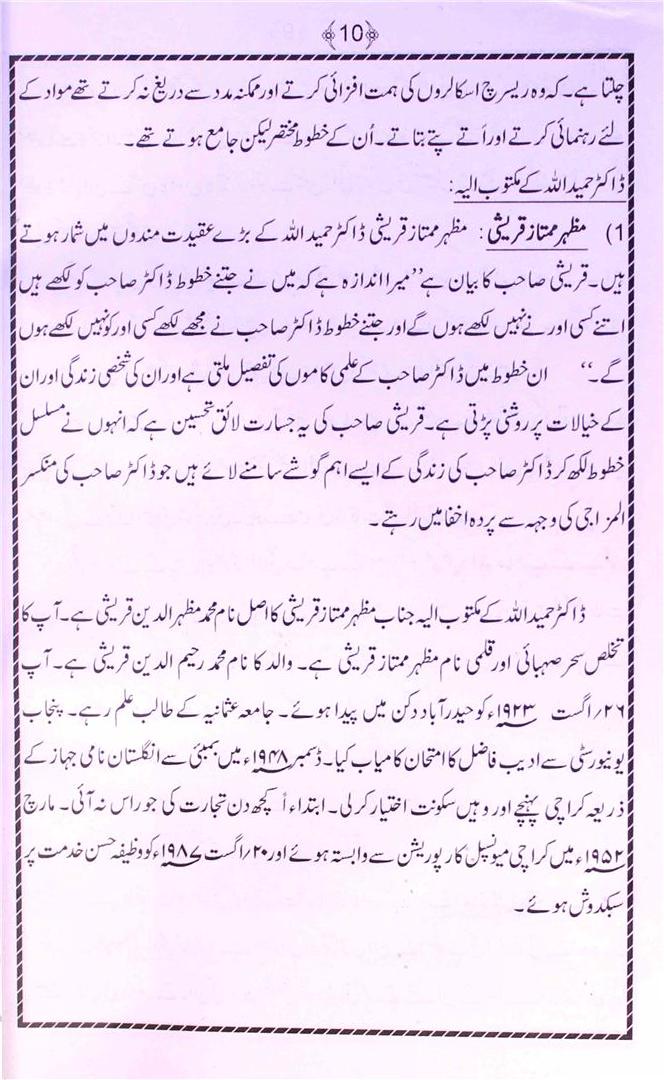 10
چلتا ہے۔ کہ وہ ریسرچ اسکالروں کی ہمت افزائی کرتے اور ممکنہ مدد سے دریغ نہ کرتے تھے مواد کے
لئے رہنمائی کرتے اور اُتے پتے بتاتے۔ اُن کے خطوط مختصر لیکن جامع ہوتے تھے۔
ڈاکٹر حمید اللہ کے مکتوب الیہ:
1) مظہر ممتاز قریشی: مظہر ممتاز قریشی ڈاکٹر حمید اللہ کے بڑے عقیدت مندوں میں شمار ہوتے
ہیں۔ قریشی صاحب کا بیان ہے ”میرا اندازہ ہے کہ میں نے جتنے خطوط ڈاکٹر صاحب کو لکھے ہیں
اتنے کسی اور نے نہیں لکھے ہوں گے اور جتنے خطوط ڈاکٹر صاحب نے مجھے لکھے کسی اور کو نہیں لکھے ہوں
گے۔“ ان خطوط میں ڈاکٹر صاحب کے علمی کاموں کی تفصیل ملتی ہے اور ان کی شخصی زندگی اور ان
کے خیالات پر روشنی پڑتی ہے۔ قریشی صاحب کی یہ جسارت لائق تحسین ہے کہ انہوں نے مسلسل
خطوط لکھ کر ڈاکٹر صاحب کی زندگی کے ایسے اہم گوشے سامنے لائے ہیں جو ڈاکٹر صاحب کی منکسر
المزاجی کی وجہہ سے پردہ اخفا میں رہتے۔
ڈاکٹر حمید اللہ کے مکتوب الیہ جناب مظہر ممتاز قریشی کا اصل نام محمد مظہر الدین قریشی ہے۔ آپ کا
تخلص سحر صہبائی اور قلمی نام مظہر ممتاز قریشی ہے۔ والد کا نام محمد رحیم الدین قریشی ہے۔ آپ
۲۶/ اگست ۱۹۲۳ء کو حیدرآباد دکن میں پیدا ہوئے۔ جامعہ عثمانیہ کے طالب علم رہے۔ پنجاب
یونیورسٹی سے ادیب فاضل کا امتحان کامیاب کیا۔ ڈسمبر ۱۹۴۸ء میں بمبئی سے انگلستان نامی جہاز کے
ذریعہ کراچی پہنچے اور وہیں سکونت اختیار کرلی۔ ابتداء اُ کچھ دن تجارت کی جو راس نہ آئی۔ مارچ
۱۹۵۲ء میں کراچی میونسپل کارپوریشن سے وابستہ ہوئے اور ۲۰/ اگست ۱۹۸۷ء کو وظیفہ حسن خدمت پر
سبکدوش ہوئے۔